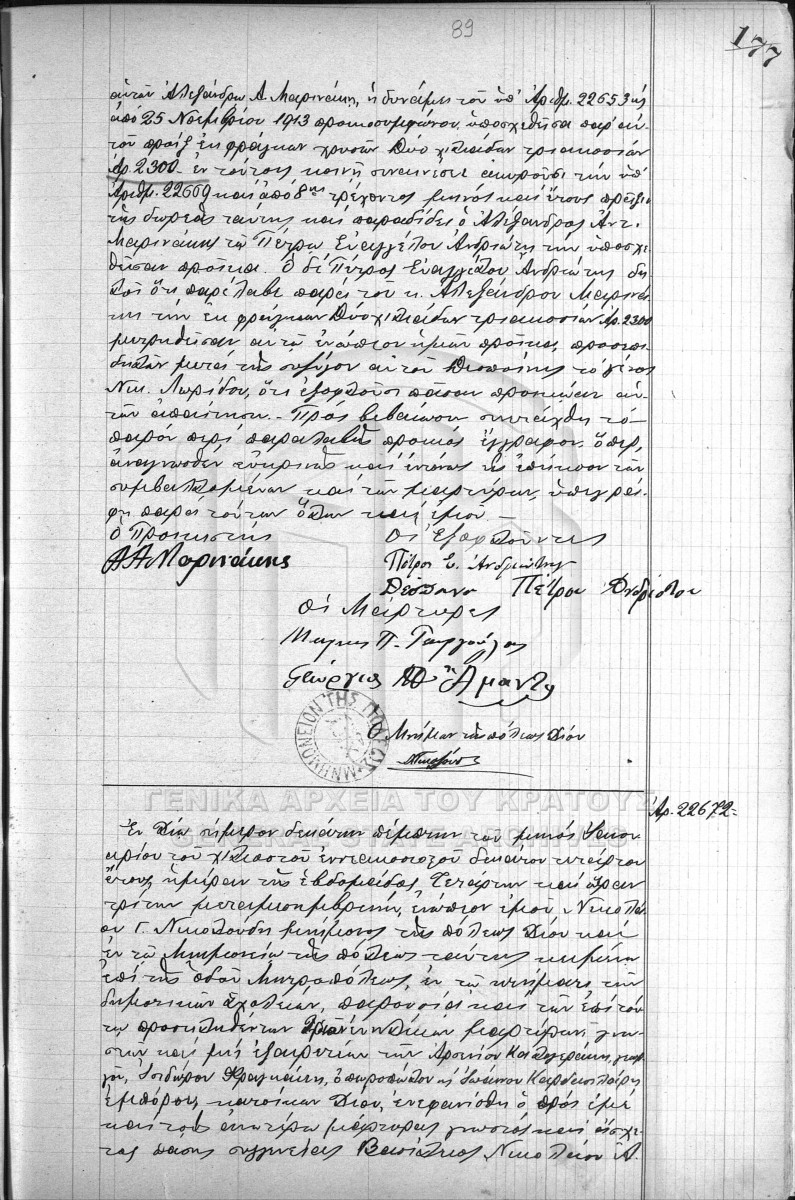 89
177
αὐτὸν Ἀλεξάνδρω Α. Μαρινάκη, ἡ δυνάμει τοῦ ὑπ' Ἀριθμ. 22653 ης
ἀπὸ 25 Νοεμβρίου 1913 προικοσυμφώνου ὑποσχεθεῖσα παρ' αὐ-
τοῦ προὶξ ἐκ φράγκων χρυσῶν δύο χιλιάδων τριακοσίων
Ἀρ. 2300 ἐν τούτοις κοινῇ συναινέσει ἀκυροῦσι τὴν ὑπ'
Ἀριθμ. 22669 καὶ ἀπὸ 8ης τρέχοντος μηνὸς καὶ ἔτους πρᾶξιν
τῆς δωρεᾶς ταύτης καὶ παραδίδει ὁ Ἀλέξανδρος Ἀντ.
Μαρινάκης τῷ Πέτρῳ Εὐαγγέλου Ἀνδριώτῃ τὴν ὑποσχε-
θεῖσαν προῖκα. Ὁ δὲ Πέτρος Εὐαγγέλου Ἀνδριώτης δη-
λοῖ ὅτι παρέλαβε παρὰ τοῦ κ. Ἀλεξάνδρου Μαρινά-
κη τὴν ἐκ φράγκων δύο χιλιάδων τριακοσίων Ἀρ. 2300
μετρηθεῖσαν αὐτῷ ἐνώπιον ἡμῶν προῖκα, προσεπι-
δηλῶν μετὰ τῆς συζύγου αὐτοῦ Δεσποίνης τὸ γένος
Νικ. Λωρίδου, ὅτι ἐξοφλοῦσι πᾶσαν προικῴαν αὐ-
τῶν ἀπαίτησιν. - Πρὸς βεβαίωσιν συνετάχθη τὸ
παρὸν περὶ παραλαβῆς προικὸς ἔγγραφον ὅπερ,
ἀναγνωσθὲν εὐκρινῶς καὶ ἐντόνως εἰς ἐπήκοον τῶν
συμβαλλομένων καὶ τῶν μαρτύρων, ὑπεγρά-
φη παρὰ τούτων ὅλων καὶ ἐμοῦ. -
ὁ Προικιστής Οἱ Ἐξοφλοῦντες
Α Α Μαρινάκης Πέτρος Ε. Ἀνδριώτης
Δέσποινα Πέτρου Ἀνδριότου
Οἱ Μάρτυρες
Π.
Γεώργιος Ἀμαντ
Ὁ Μνήμων τῆς πόλεως Χίου
ΜΝΗΜΟΝΕΙΟΝ ΤΗΣ ΠΟΛΕΩΣ
ΓΕΝΙΚΑ ΑΡΧΕΙΑ ΤΟΥ ΚΡΑΤΟΥΣ
Ἀρ. 22672
Ἐν Χίῳ σήμερον δεκάτην πέμπτην τοῦ μηνὸς Ἰανου-
αρίου τοῦ χιλιοστοῦ ἐννεακοσιοστοῦ δεκάτου τετάρτου
ἔτους ἡμέραν τῆς ἑβδομάδος Τετάρτην καὶ ὥραν
τρίτην μεταμεσημβρινήν, ἐνώπιον ἐμοῦ Νικολά-
ου Γ. Νικολούδη μνήμονος τῆς πόλεως Χίου καὶ
ἐν τῷ Μνημονείῳ τῆς πόλεως ταύτης κειμένῳ
ἐπὶ τῆς ὁδοῦ Μητροπόλεως, ἐν τῷ κτήματι τῶν
δημοτικῶν σχολείων, παρουσίᾳ καὶ τῶν ἐπὶ τού-
τῳ προσκληθέντων ἐνηλίκων μαρτύρων γνω-
στῶν καὶ μὴ ἐξαιρετέων τῶν Ἀρσενίου Καλογεράκη,
Ἰσιδώρου Φραγκάκη, ὀπωροπώλου κ Ἰωάννου
ἐμπόρου, κατοίκων Χίου, ἐνεφανίσθη ὁ πρὸς ἐμὲ
καὶ τοὺς ἀνωτέρω μάρτυρας γνωστὸς καὶ ἄσχε-
τος πάσης συγγενείας Βασίλειος Νικολάου